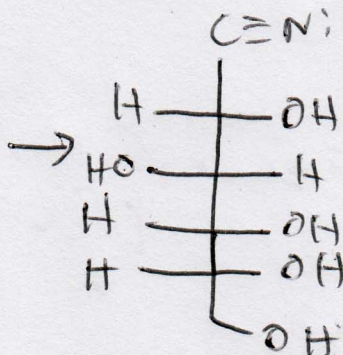 C≡N:
H OH
→ HO H
H OH
H OH
OH